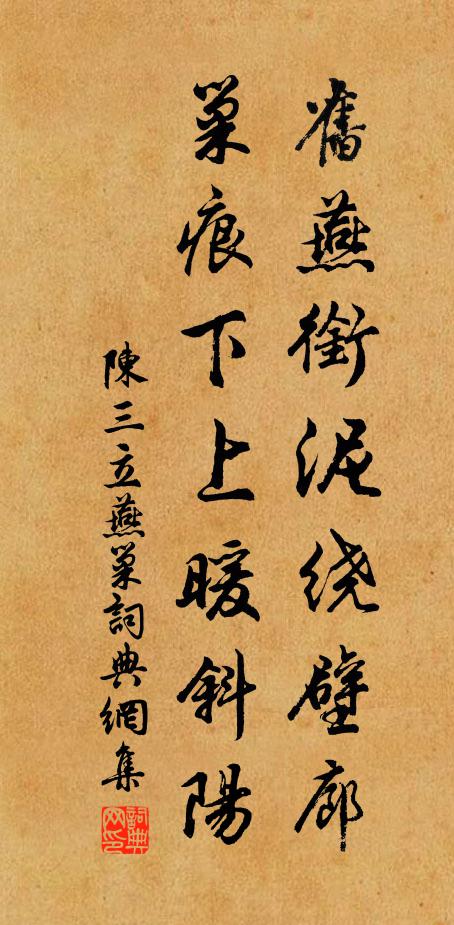 舊燕銜泥绕壁廊
巢痕下上暖斜陽
陳三立燕巢詞典網集
詞典网印